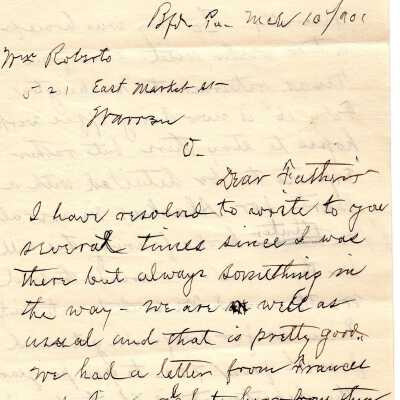 Bfd. Pa. Mch 10/901
Wm Roberts
521 East Market St
Warren
O
Dear Father
I have resolved to write to you
several times since I was
there but always something in
the way - We are well as
usual and that is pretty good.
We had a letter from Frances
from